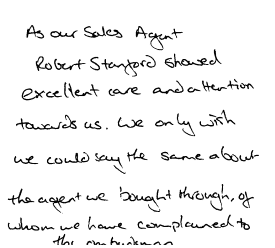 As our Sales Agent
Robert Stanford showed
excellent care and attention
towards us. We only wish
we could say the same about
the agent we bought through, of
whom we have complained to
the ombudsman